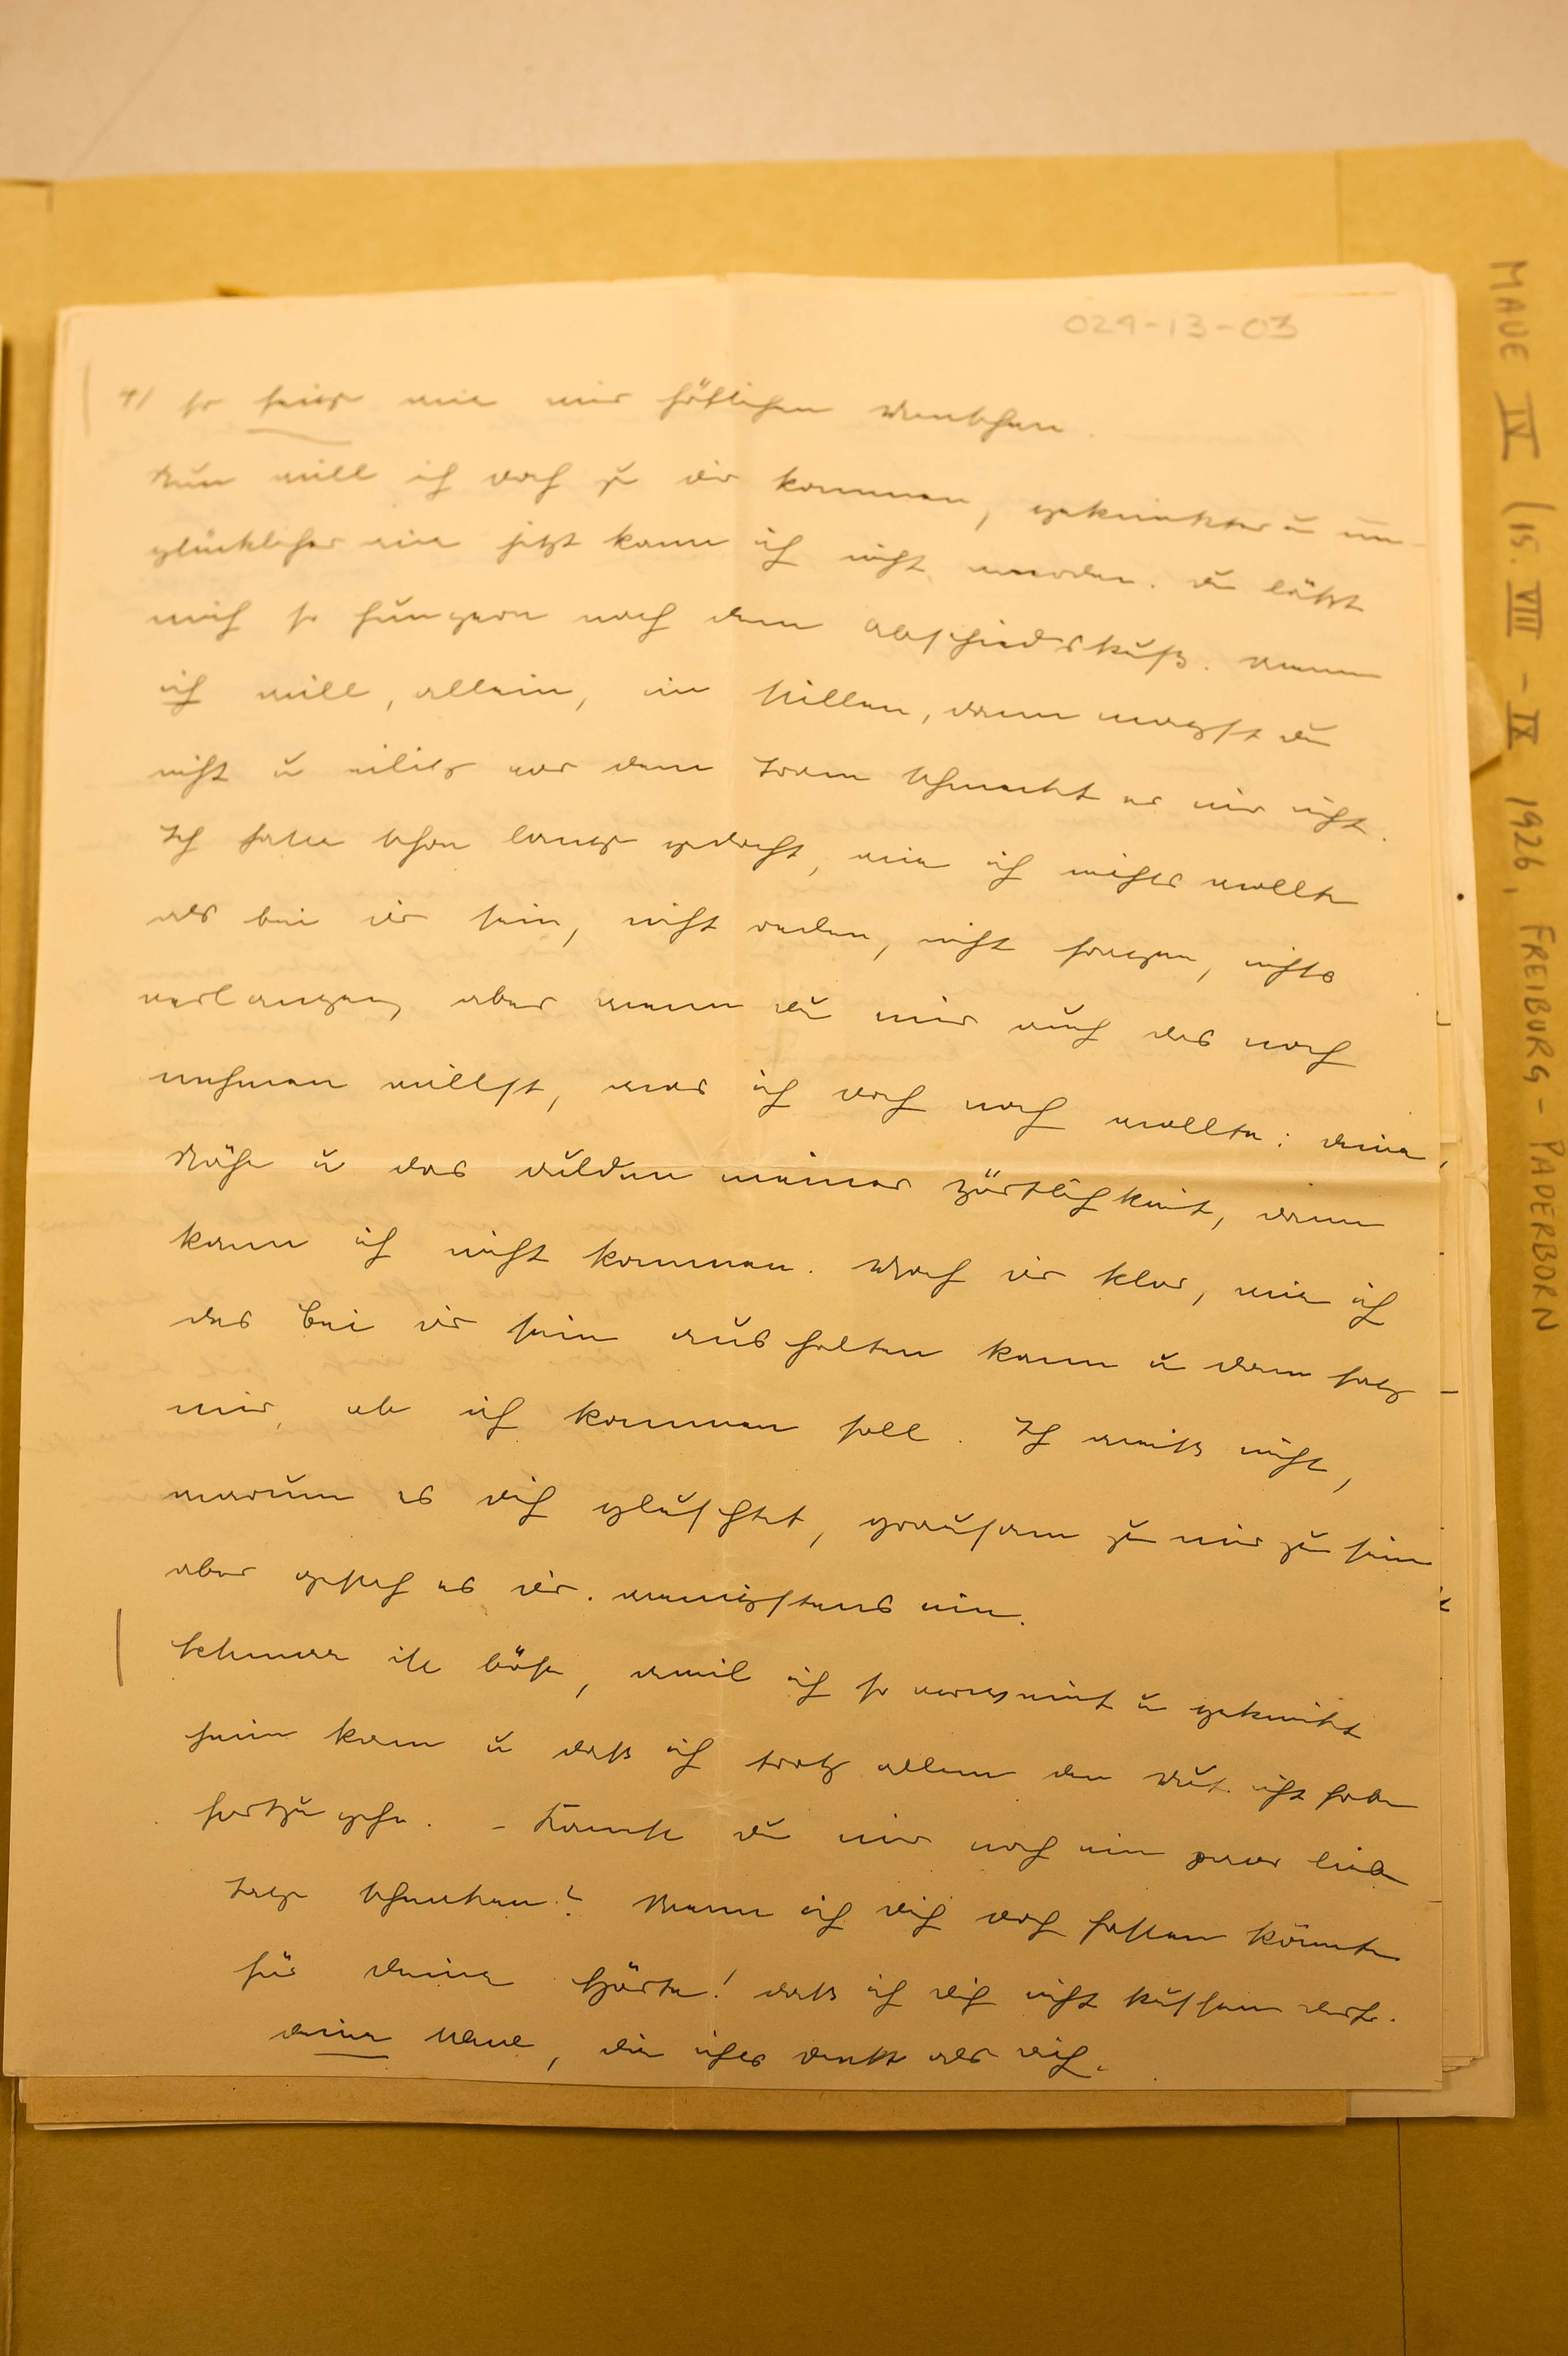 029-13-03
MAUE IV (15. VIII - IX 1926, FREIBURG - PADERBORN
4/ so feige wie nur häßlichen Menschen.
Nun will ich doch zu dir kommen, geknickter u un-
glücklicher wie jetzt kann ich nicht werden. Du läßt
mich so hungern nach dem Abschiedskuß. Wenn
ich will, allein, im Stillen, dann magst du
nicht u eilig vor dem Tram schmeckt er mir nicht.
Ich habe schon lange gedacht, wie ich nichts wollte
als bei dir sein, nicht reden, nicht fragen, nichts
verlangen, aber wenn du mir auch das noch
nehmen willst, was ich doch noch wollte: deine
Nähe u das Dulden meiner Zärtlichkeit, dann
kann ich nicht kommen. Mach dir klar, wie ich
das bei dir sein aushalten kann u dann sag
mir, ob ich kommen soll. Ich weiß nicht,
warum es dich gelüstet, grausam zu mir zu sein
aber gesteh es dir wenigstens ein.
ist böse, weil ich so verweint u geknickt
heim kam u daß ich trotz allem den Mut nicht habe
fortzugehn. – Kannst du mir noch ein paar liebe
Tage schenken? Wenn ich dich doch hassen könnte
für deine Härte! daß ich dich nicht küssen darf.
deine Maue, die nichts denkt als dich.